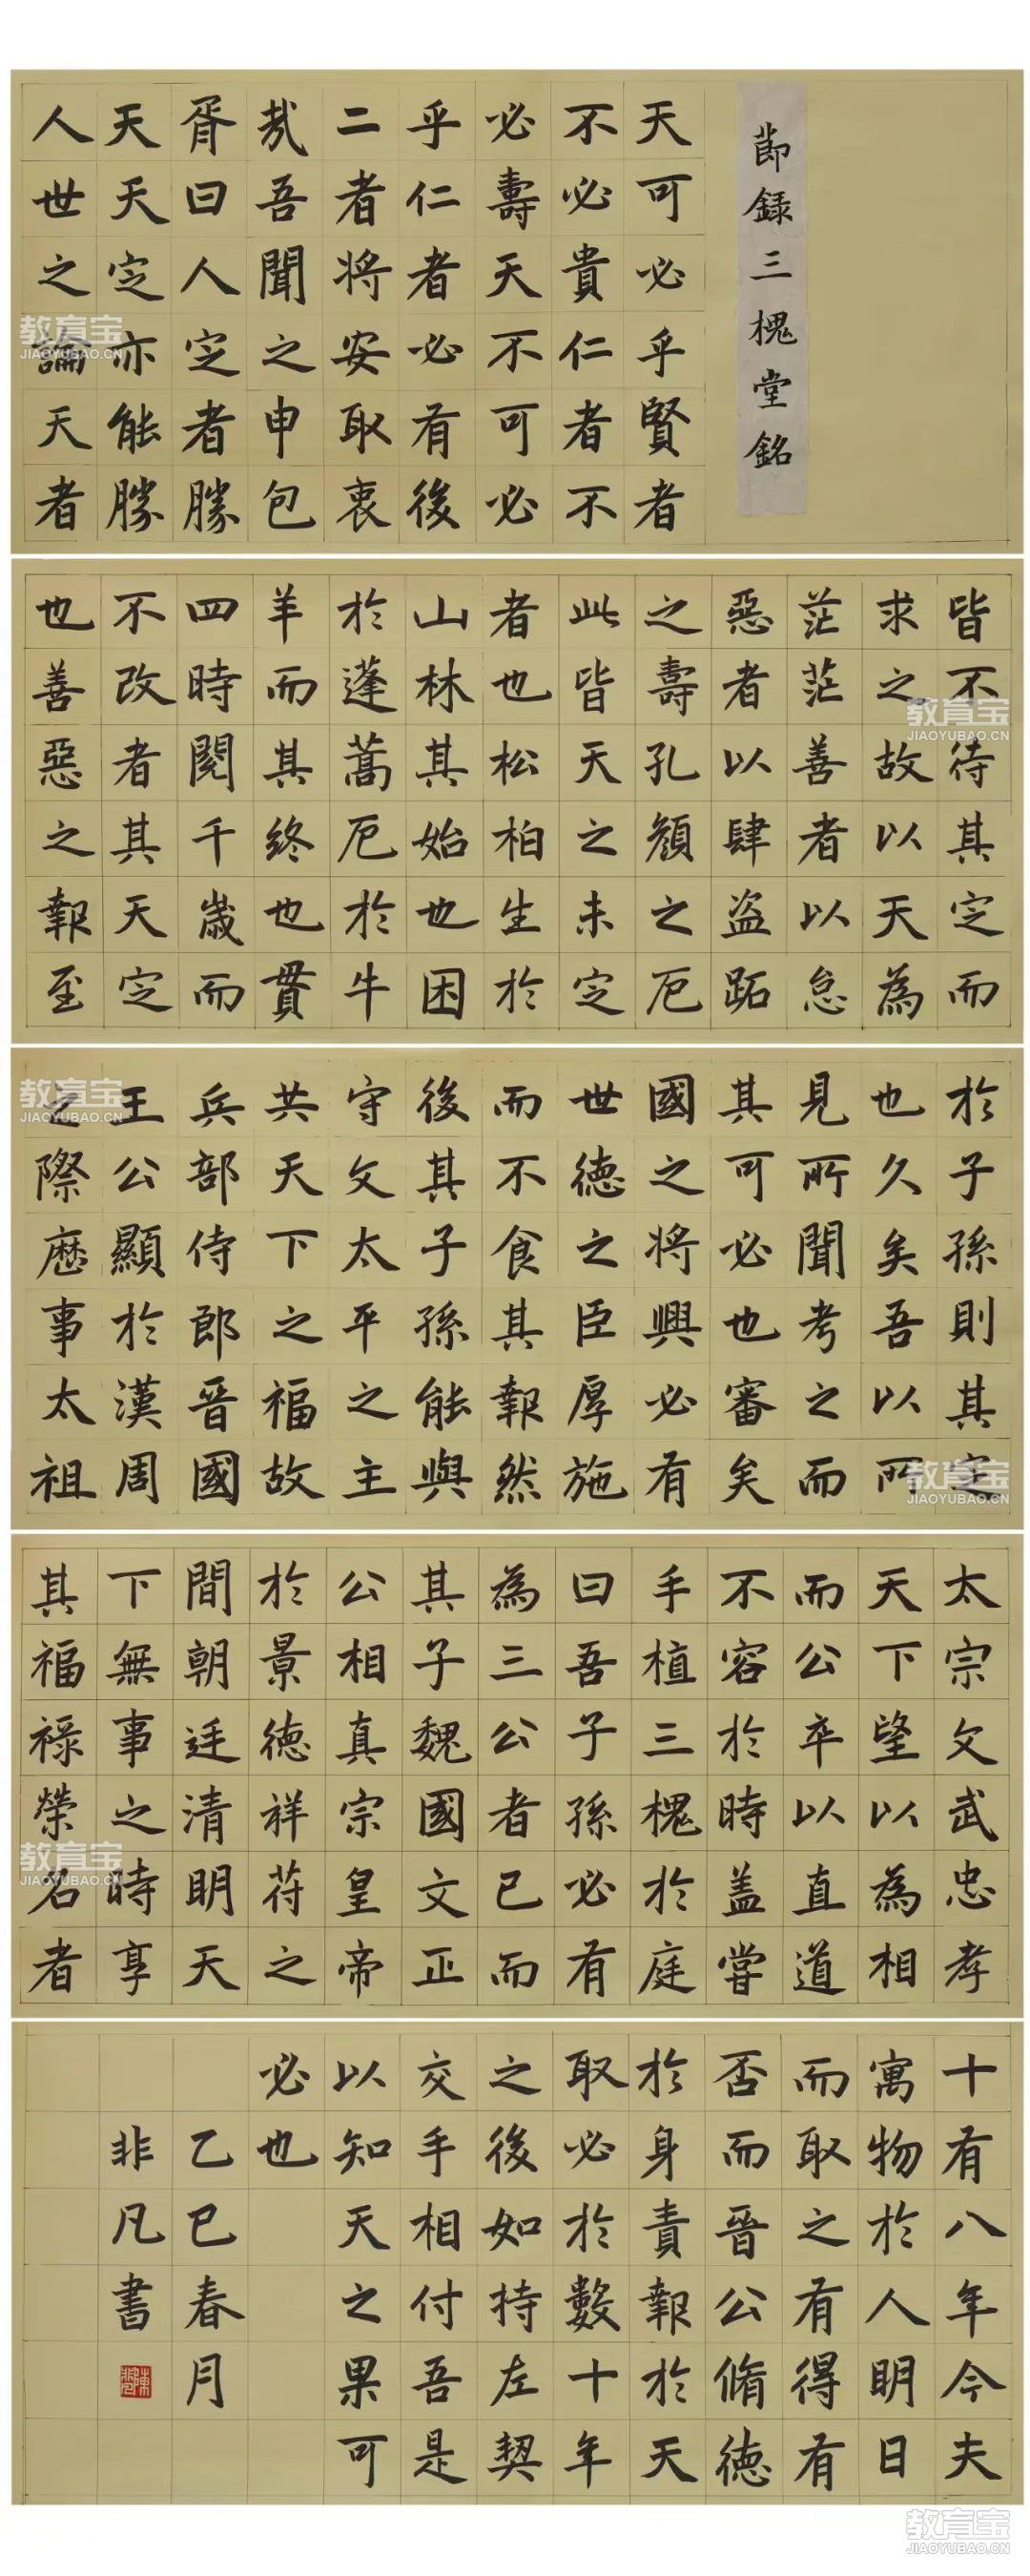 莭録三槐堂銘
天可必乎賢者
不必貴仁者不
必壽天不可必
乎仁者必有後
二者将安取衷
哉吾聞之申包
胥曰人定者勝
天天定亦能勝
人世之論天者
皆不待其定而
求之故以天為
茫茫善者以怠
惡者以肆盗跖
之壽孔顔之厄
此皆天之未定
者也松柏生於
山林其始也困
於蓬蒿厄於牛
羊而其終也貫
四時閱千歲而
不改者其天定
也善惡之報至
於子孫則其定
也久矣吾以所
見所聞考之而
其可必也審矣
國之将興必有
世德之臣厚施
而不食其報然
後其子孫能與
守文太平之主
共天下之福故
兵部侍郎晉國
王公顯於漢周
之際歷事太祖
太宗文武忠孝
天下望以為相
而公卒以直道
不容於時蓋嘗
手植三槐於庭
曰吾子孫必有
為三公者已而
其子魏國文正
公相真宗皇帝
於景德祥符之
間朝廷清明天
下無事之時享
其福祿榮名者
十有八年今夫
寓物於人明日
而取之有得有
否而晉公脩德
於身責報於天
取必於數十年
之後如持左契
交手相付吾是
以知天之果可
必也
乙巳春月
非凡書
教育宝
JIAOYUBAO.CN
教育宝
JIAOYUBAO.CN
教育宝
JIAOYUBAO.CN
教育宝
JIAOYUBAO.CN
教育宝
JIAOYUBAO.CN
教育宝
JIAOYUBAO.CN